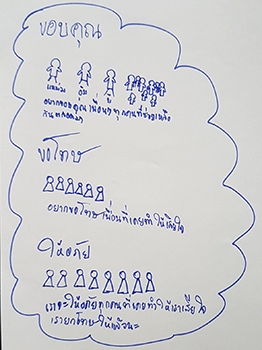 ขอบคุณ
อยากขอบคุณเพื่อนๆทุกคนที่ช่วยเหลือ
กันตลอดมา
ขอโทษ
อยากขอโทษเพื่อนที่เคยทำให้เสียใจ
ให้อภัย
เราจะให้อภัยทุกคนที่เคยทำให้เราเสียใจ
เรายกโทษให้แล้วนะ